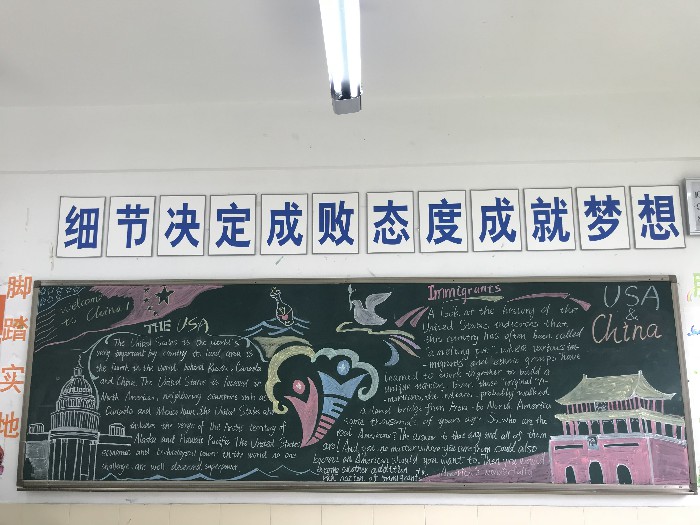 细节决定成败态度成就梦想
脚踏实地
welcome
to China!
THE USA
The United States is the world's
very important big country by land area is
the fourth in the world behind Russia, Canada
and China. The United States is located in
North America, neighboring countries such as
Canada and Mexico
Alaska and Hawaii Pacific. The United States
economic and technological power in the world no one
challenge. are well deserved superpower.
Immigrants
A look at the history of the
United States indicates that
this country has often been called
"a melting pot", where various im-
migrants and ethnic groups have
learned to work together to build a
unique nation. Even those "original" A-
mericans, the Indians, probably walked
a land bridge from to North America
some thousands of years ago. So, who are the
real Americans? The answer is that any and all of them
are! And you, no matter where you come from, could also
become an American should you want to. Then you would
become another addition
rich nation of immigrants.
USA
&
China